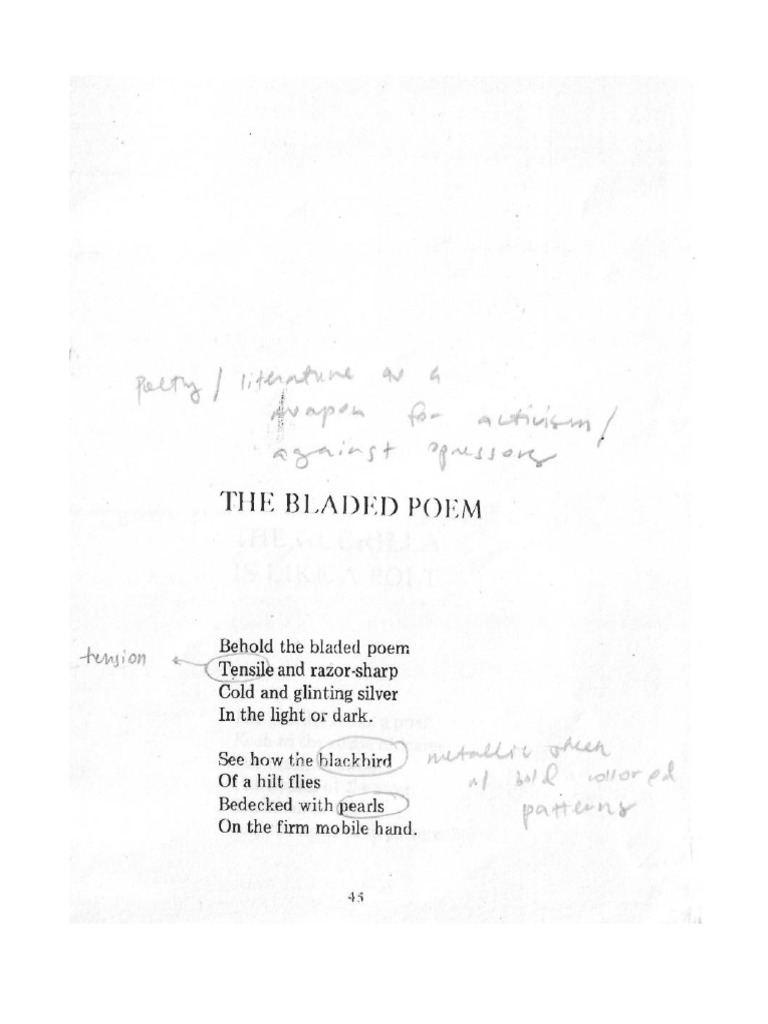 Poetry / literature as a
weapon for activism /
against opressors
THE BLADED POEM
Behold the bladed poem
tension
Tensile and razor-sharp
Cold and glinting silver
In the light or dark.
See how the blackbird
metallic sheen
Of a hilt flies
w/ bold colored
Bedecked with pearls
patterns
On the firm mobile hand.
45